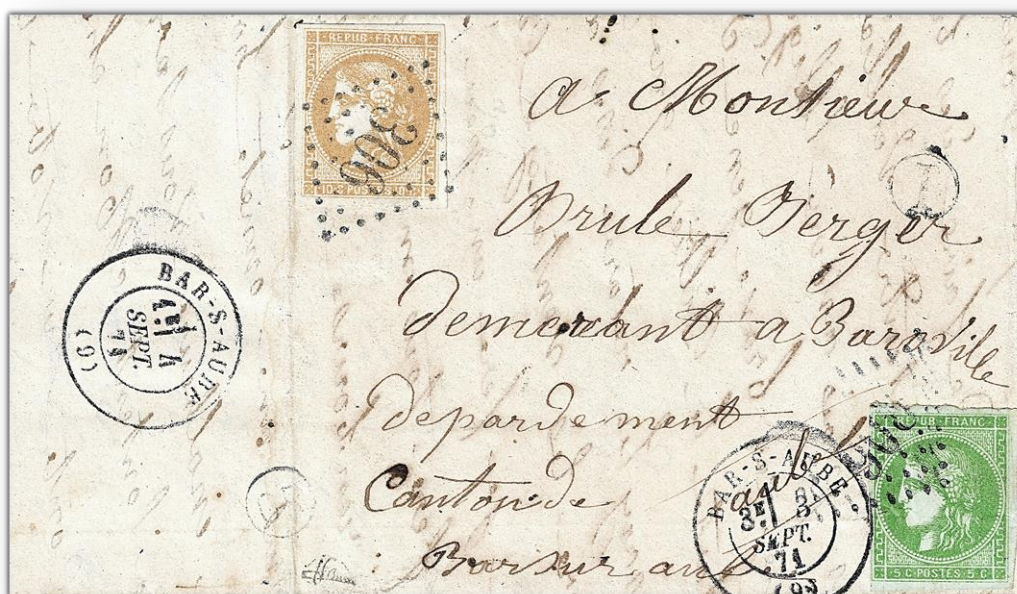 REPUB·FRANC
306
10·C·POSTES·10·C
a Monsieur
Brule Berger
demerant a Baroville
depardement
aube
Canton de
Bar sur aube
BAR-S-AUBE
4
SEPT.
71
(9)
BAR-S-AUBE
3E
SEPT.
71
(9)
REPUB·FRANC
5·C·POSTES·5·C